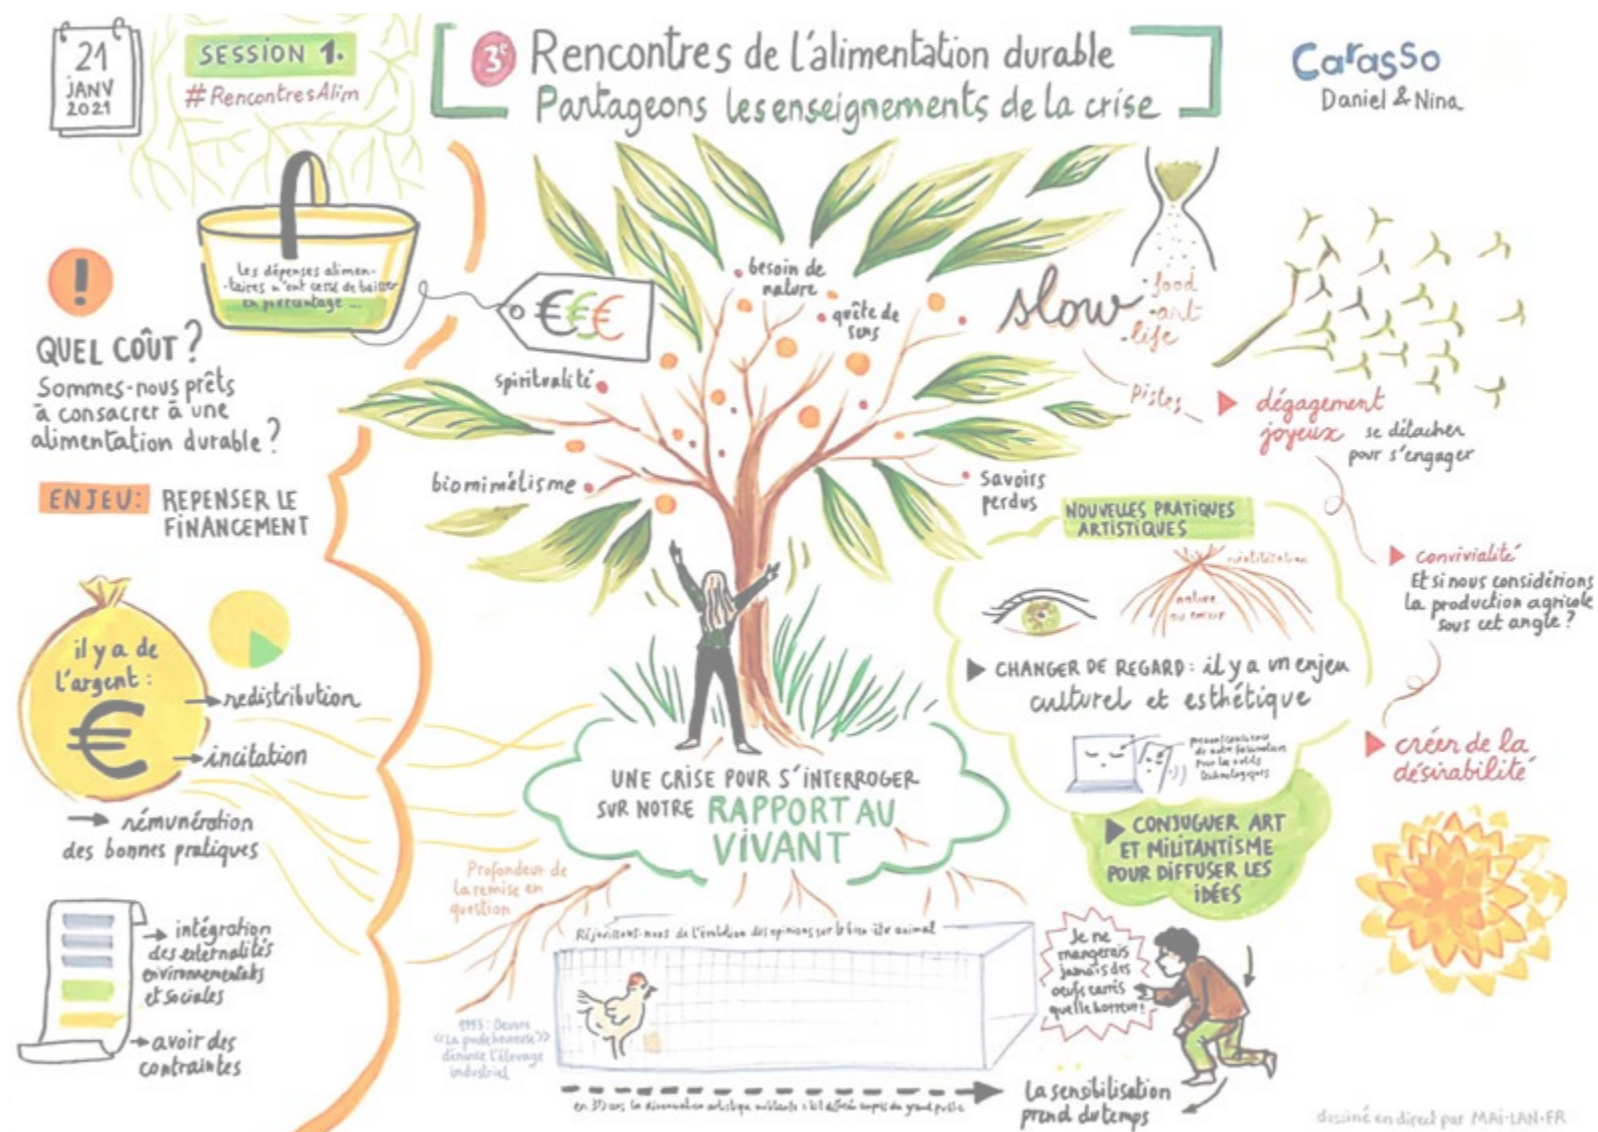 21
JANV
2021
SESSION 1.
#RencontresAlim
3e Rencontres de l'alimentation durable
Partageons les enseignements de la crise
Carasso
Daniel & Nina
Les dépenses alimen-
-taires n'ont cessé de baisser
en pourcentage ...
€€€
!
QUEL COÛT ?
Sommes-nous prêts
à consacrer à une
alimentation durable ?
ENJEU: REPENSER LE
FINANCEMENT
il y a de
l'argent :
€
redistribution
incitation
rémunération
des bonnes pratiques
intégration
des externalités
environnementales
et sociales
avoir des
contraintes
besoin de
nature
quête de
sens
spiritualité
biomimétisme
savoirs
perdus
slow
food
art
life
Pistes
dégagement
joyeux se détacher
pour s'engager
convivialité
Et si nous considérions
la production agricole
sous cet angle ?
créer de la
désirabilité
NOUVELLES PRATIQUES
ARTISTIQUES
réutilisation
nature
CHANGER DE REGARD : il y a un enjeu
culturel et esthétique
prenons conscience
de notre fascination
pour les outils
technologiques
CONJUGUER ART
ET MILITANTISME
POUR DIFFUSER LES
iDÉES
UNE CRISE POUR S'INTERROGER
SUR NOTRE RAPPORT AU
VIVANT
Profondeur de
la remise en
question
Réjouissons-nous de l'évolution des opinions sur le bien-être animal
1993 : Oeuvre
dénonce l'élevage
industriel
Je ne
mangerais
jamais des
oeufs carrés
quelle horreur !
La sensibilisation
prend du temps
dessiné en direct par MAI-LAN.FR